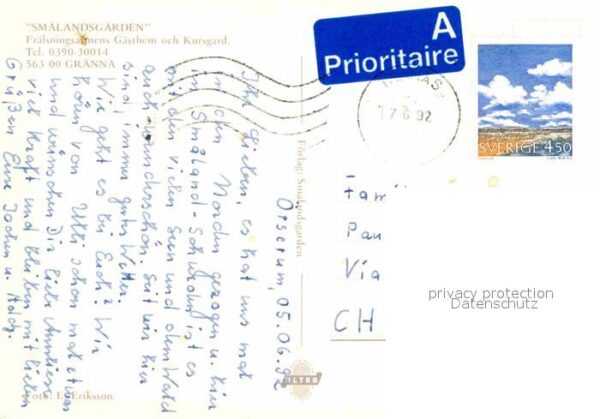 "SMÅLANDSGÅRDEN"
Frälsningsarmens Gästhem och Kursgard.
Tel. 0390-30014
563 00 GRÄNNA
A
Prioritaire
17 6 92
SVERIGE 4,50
Örserum, 05.06.92
Ihr Lieben, es hat uns mal
in den Norden gezogen u. hier
in Småland-Schweden ist es
mit den vielen Seen und dem Wald
auch wunderschön. Seit wir hier
sind immer gutes Wetter.
Wie geht es bei Euch? Wir
hören von Ulli schon mal etwas
und wünschen Dir liebe Annliese
viel Kraft und bleiben mit lieben
Grüßen Eure Jochen u.
Förlag: Smålandsgarden
ULTRA
Foto: E. Eriksson
Fami
Pau
Via
CH
privacy protection
Datenschutz